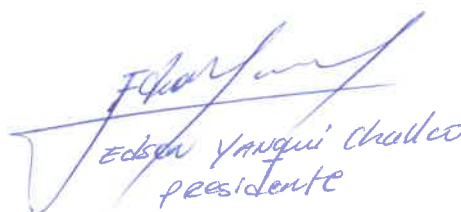 Edson YANQUI Challco
PResidente